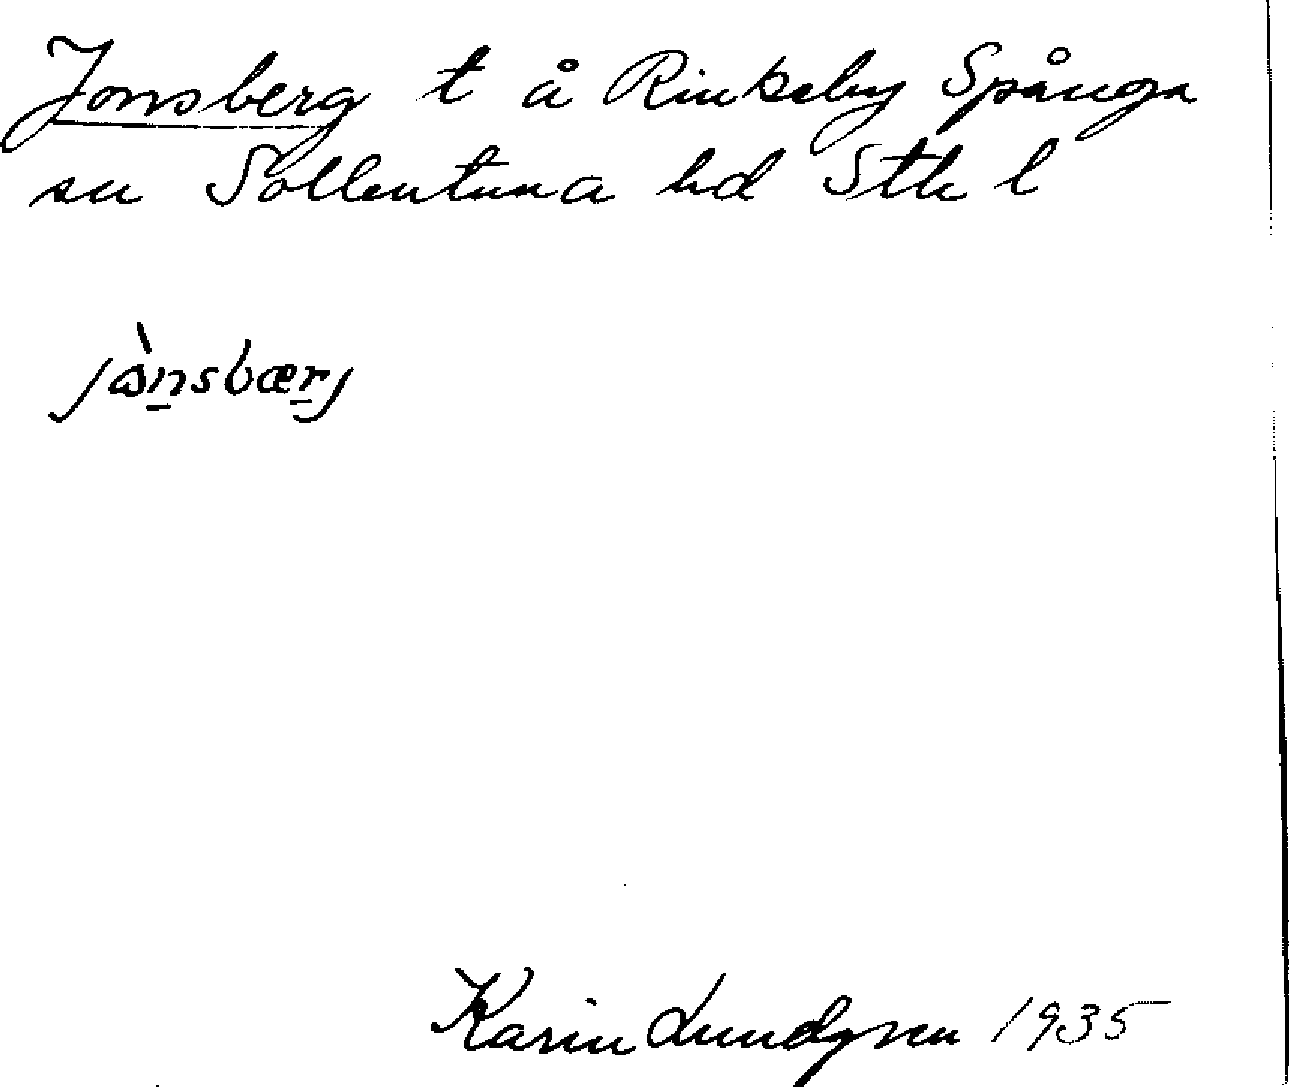 Jonsberg t å Rinkeby Spånga
sn Sollentuna hd Sthlm l
jɷ̀n̲sbær̲j
Karin Lundgren 1935